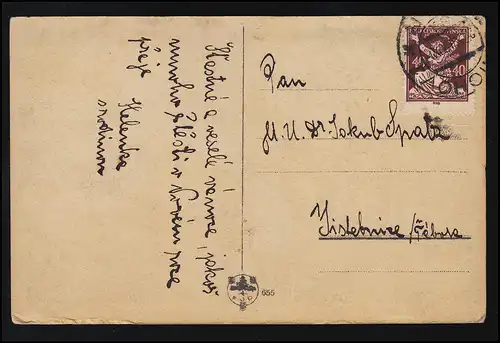 Šťastné a veselé vánoce, jakož
mnoho štěstí v Novém roce
přeje
Helenka
s rodinou
Pan
M.U.Dr. Jakub Spatz
Jistebnice /Tábora
40
40
655